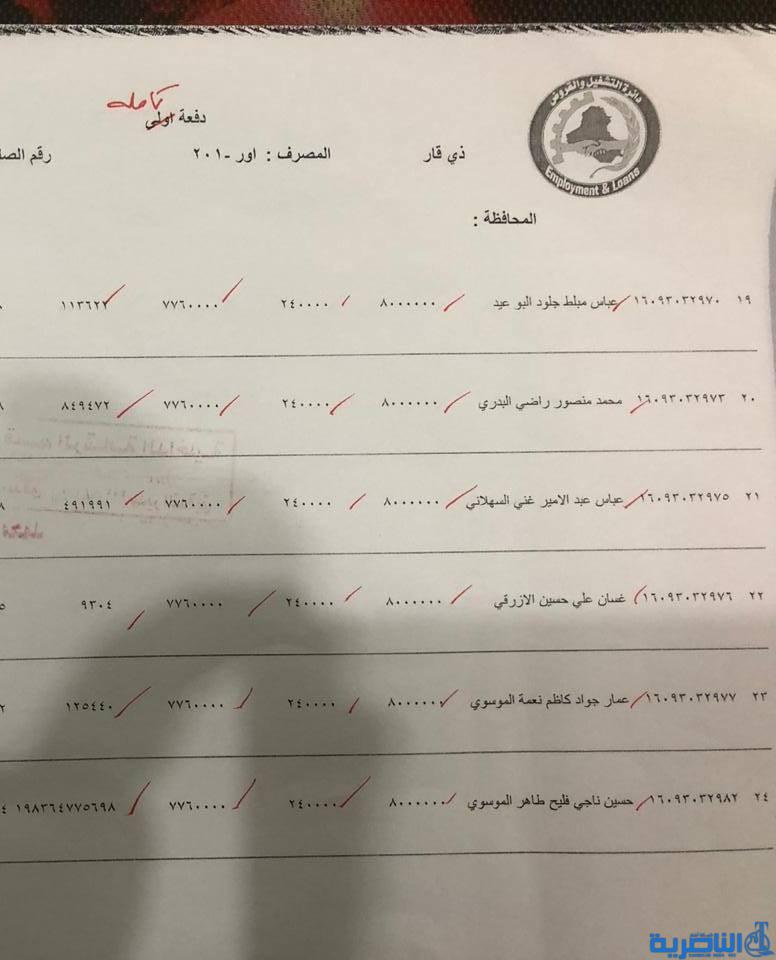 دائرة التشغيل والقروض
Employment & Loans
كاملة
دفعة اولى
ذي قار المصرف : اور -٢٠١ رقم الصا
المحافظة :
١٩ ١٦٠٩٣٠٣٢٩٧٠ عباس مبلط جلود البو عيد ٨٠٠٠٠٠٠ ٢٤٠٠٠٠ ٧٧٦٠٠٠٠ ١١٣٦٢٢
٢٠ ١٦٠٩٣٠٣٢٩٧٣ محمد منصور راضي البدري ٨٠٠٠٠٠٠ ٢٤٠٠٠٠ ٧٧٦٠٠٠٠ ٨٤٩٤٧٢ ٨
٢١ ١٦٠٩٣٠٣٢٩٧٥ عباس عبد الامير غني السهلاني ٨٠٠٠٠٠٠ ٢٤٠٠٠٠ ٧٧٦٠٠٠٠ ٤٩١٩٩١ ٨
٢٢ ١٦٠٩٣٠٣٢٩٧٦ غسان علي حسين الازرقي ٨٠٠٠٠٠٠ ٢٤٠٠٠٠ ٧٧٦٠٠٠٠ ٩٣٠٤ ٥
٢٣ ١٦٠٩٣٠٣٢٩٧٧ عمار جواد كاظم نعمة الموسوي ٨٠٠٠٠٠٠ ٢٤٠٠٠٠ ٧٧٦٠٠٠٠ ١٢٥٤٤٠ ٢
٢٤ ١٦٠٩٣٠٣٢٩٨٢ حسين ناجي فليح طاهر الموسوي ٨٠٠٠٠٠٠ ٢٤٠٠٠٠ ٧٧٦٠٠٠٠ ١٩٨٣٦٤٧٧٥٦٩٨ ٤
الناصرية